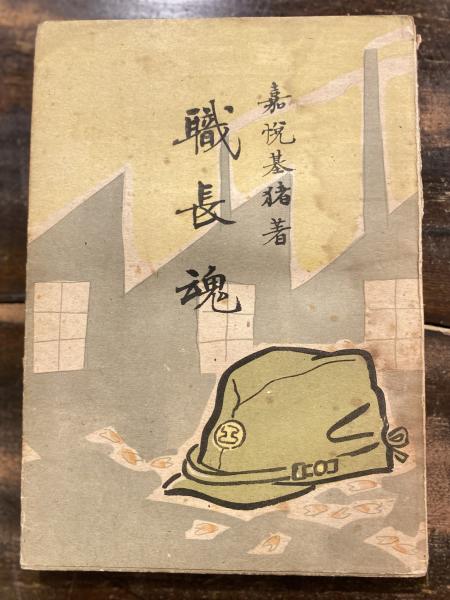 嘉悦基猪著
職長魂
工